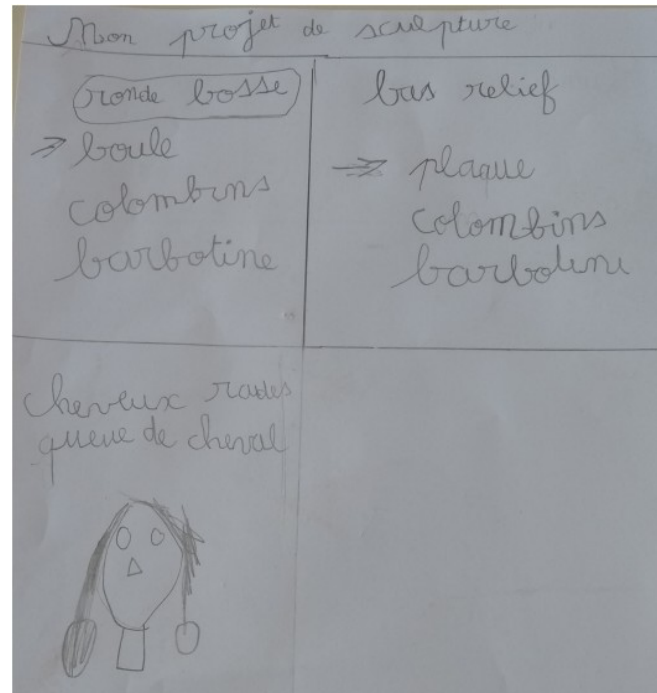 Mon projet de sculpture
ronde bosse
→ boule
colombins
barbotine
bas relief
→ plaque
colombins
barbotine
cheveux
queue de cheval